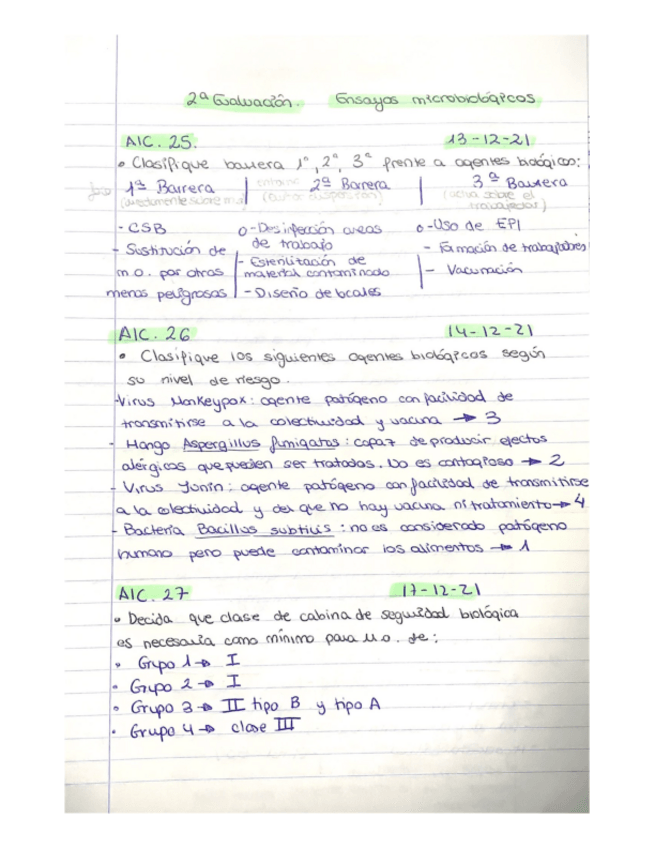 2ª Evaluación. Ensayos microbiológicos
AIC. 25. 13-12-21
• Clasifique barrera 1ª, 2ª, 3ª frente a agentes biológicos:
1ª Barrera 2ª Barrera 3ª Barrera
(actúa sobre el
trabajador)
- CSB
- Sustitución de
m.o. por otros
menos peligrosos
- Desinfección areas
de trabajo
- Esterilización de
material contaminado
- Diseño de locales
- Uso de EPI
- Formación de trabajadores
- Vacunación
AIC. 26 14-12-21
• Clasifique los siguientes agentes biológicos según
su nivel de riesgo.
-Virus Monkeypox: agente patógeno con facilidad de
transmitirse a la colectividad y vacuna → 3
- Hongo Aspergillus fumigatus: capaz de producir efectos
alérgicos que pueden ser tratados. No es contagioso → 2
- Virus Junin: agente patógeno con facilidad de transmitirse
a la colectividad y del que no hay vacuna ni tratamiento → 4
- Bacteria Bacillus subtilis: no es considerado patógeno
humano pero puede contaminar los alimentos → 1
AIC. 27 17-12-21
• Decida que clase de cabina de seguridad biológica
es necesaria como mínimo para m.o. de:
• Grupo 1 → I
• Grupo 2 → I
• Grupo 3 → II tipo B y tipo A
• Grupo 4 → clase III